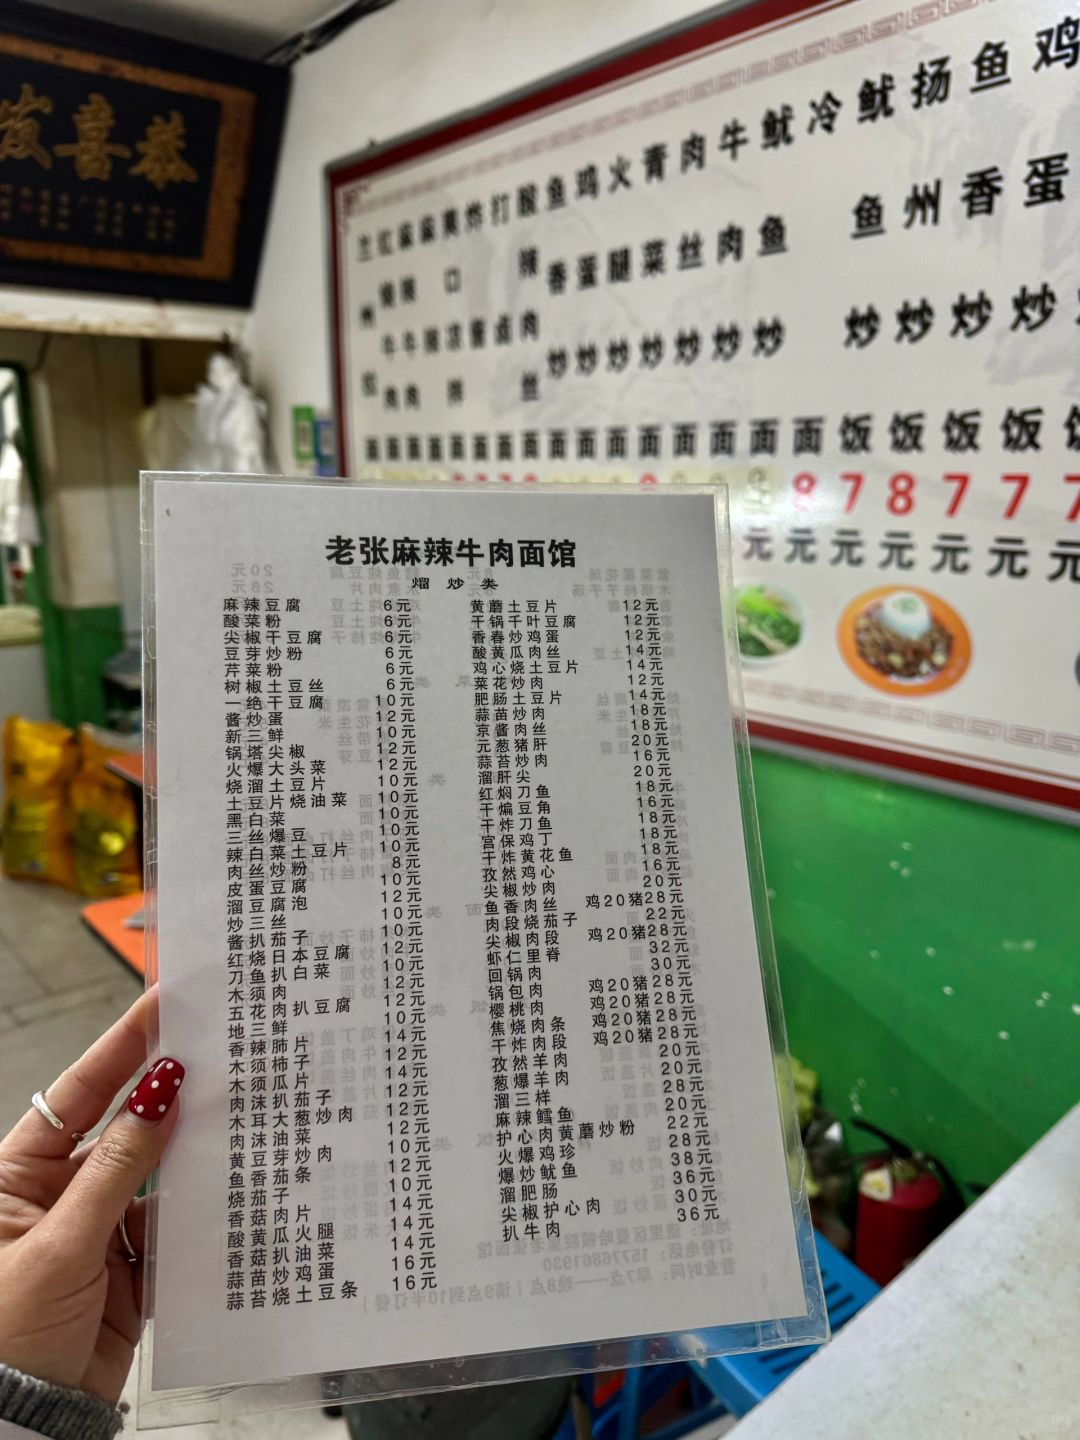 恭喜发
老张麻辣牛肉面馆
熘炒类
麻辣豆腐 6元
酸菜粉 6元
尖椒干豆腐 6元
豆芽炒粉 6元
芹菜粉 6元
树椒土豆丝 6元
一绝干豆腐 10元
酱炒蛋 12元
新三鲜 10元
锅塔尖椒 12元
火爆大头菜 12元
烧溜土豆片 10元
土豆片烧油菜 10元
黑白菜 10元
三丝爆豆 10元
辣白菜土豆片 10元
肉丝炒粉 8元
皮蛋豆腐 10元
溜豆腐泡 12元
炒三丝 10元
酱扒茄子 10元
红烧日本豆腐 12元
刀鱼扒白菜 10元
木须肉 12元
五花肉扒豆腐 10元
地三鲜 14元
香辣肺片 12元
木须柿子 14元
木须瓜片 12元
肉沫扒茄子 12元
木耳大葱炒肉 12元
肉沫油菜 10元
黄豆芽炒肉 12元
鱼香茄条 10元
烧茄子 14元
香菇肉片 14元
酸黄瓜火腿 14元
香菇扒油菜 16元
蒜苗炒鸡蛋 16元
蒜苔烧土豆条
黄蘑土豆片 12元
干锅千叶豆腐 12元
香春炒鸡蛋 12元
酸黄瓜肉丝 14元
鸡心烧土豆片 14元
菜花炒肉 12元
肥肠土豆片 14元
蒜苗炒肉 18元
京酱肉丝 18元
元葱猪肝 20元
蒜苔炒肉 16元
溜肝尖 20元
红焖刀鱼 18元
干煸豆角 16元
干炸刀鱼 18元
宫保鸡丁 18元
干炸黄花鱼 18元
孜然鸡心 16元
尖椒炒肉 20元
鱼香肉丝 鸡20猪28元
肉段烧茄子 22元
尖椒肉段 鸡20猪28元
虾仁里脊 32元
回锅肉 30元
锅包肉 鸡20猪28元
樱桃肉 鸡20猪28元
焦烧肉条 鸡20猪28元
干炸肉段 鸡20猪28元
孜然羊肉 20元
葱爆羊肉 20元
溜三样 28元
麻辣鳕鱼 20元
护心肉黄蘑炒粉 22元
火爆鸡珍 28元
爆炒鱿鱼 38元
溜肥肠 36元
尖椒护心肉 30元
扒牛肉 36元
酸辣肉丝面
鱼香炒面
鸡蛋炒面
火腿炒面
青菜炒面
肉丝炒面
牛肉炒面
鱿鱼炒面
冷面 8元
鱿鱼炒饭 7元
扬州炒饭 8元
鱼香炒饭 7元
鸡蛋炒饭 7元